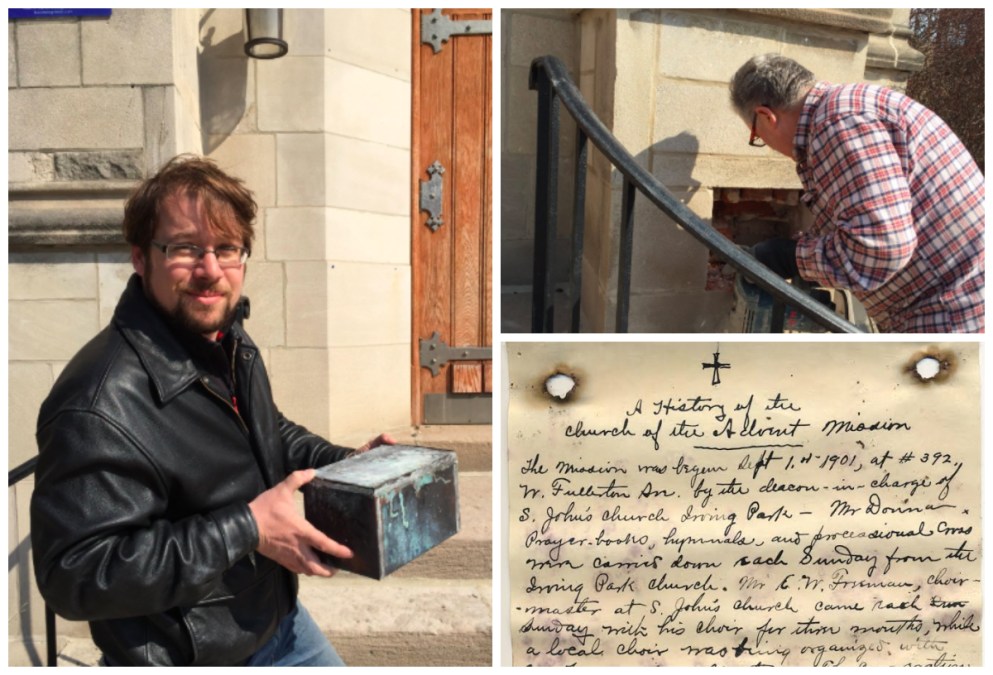 A History of the
church of the Advent Mission
The Mission was begun Sept 1st 1901, at # 392,
W. Fullerton Av. by the deacon-in-charge of
S. John's church Irving Park - Mr
Prayer-books, hymnals, and processional Cross
were carried down each Sunday from the
Irving Park church. Mr E. W. Freeman, choir-
-master at S. John's church came each
Sunday with his choir for three months, while
a local choir was being organized. with